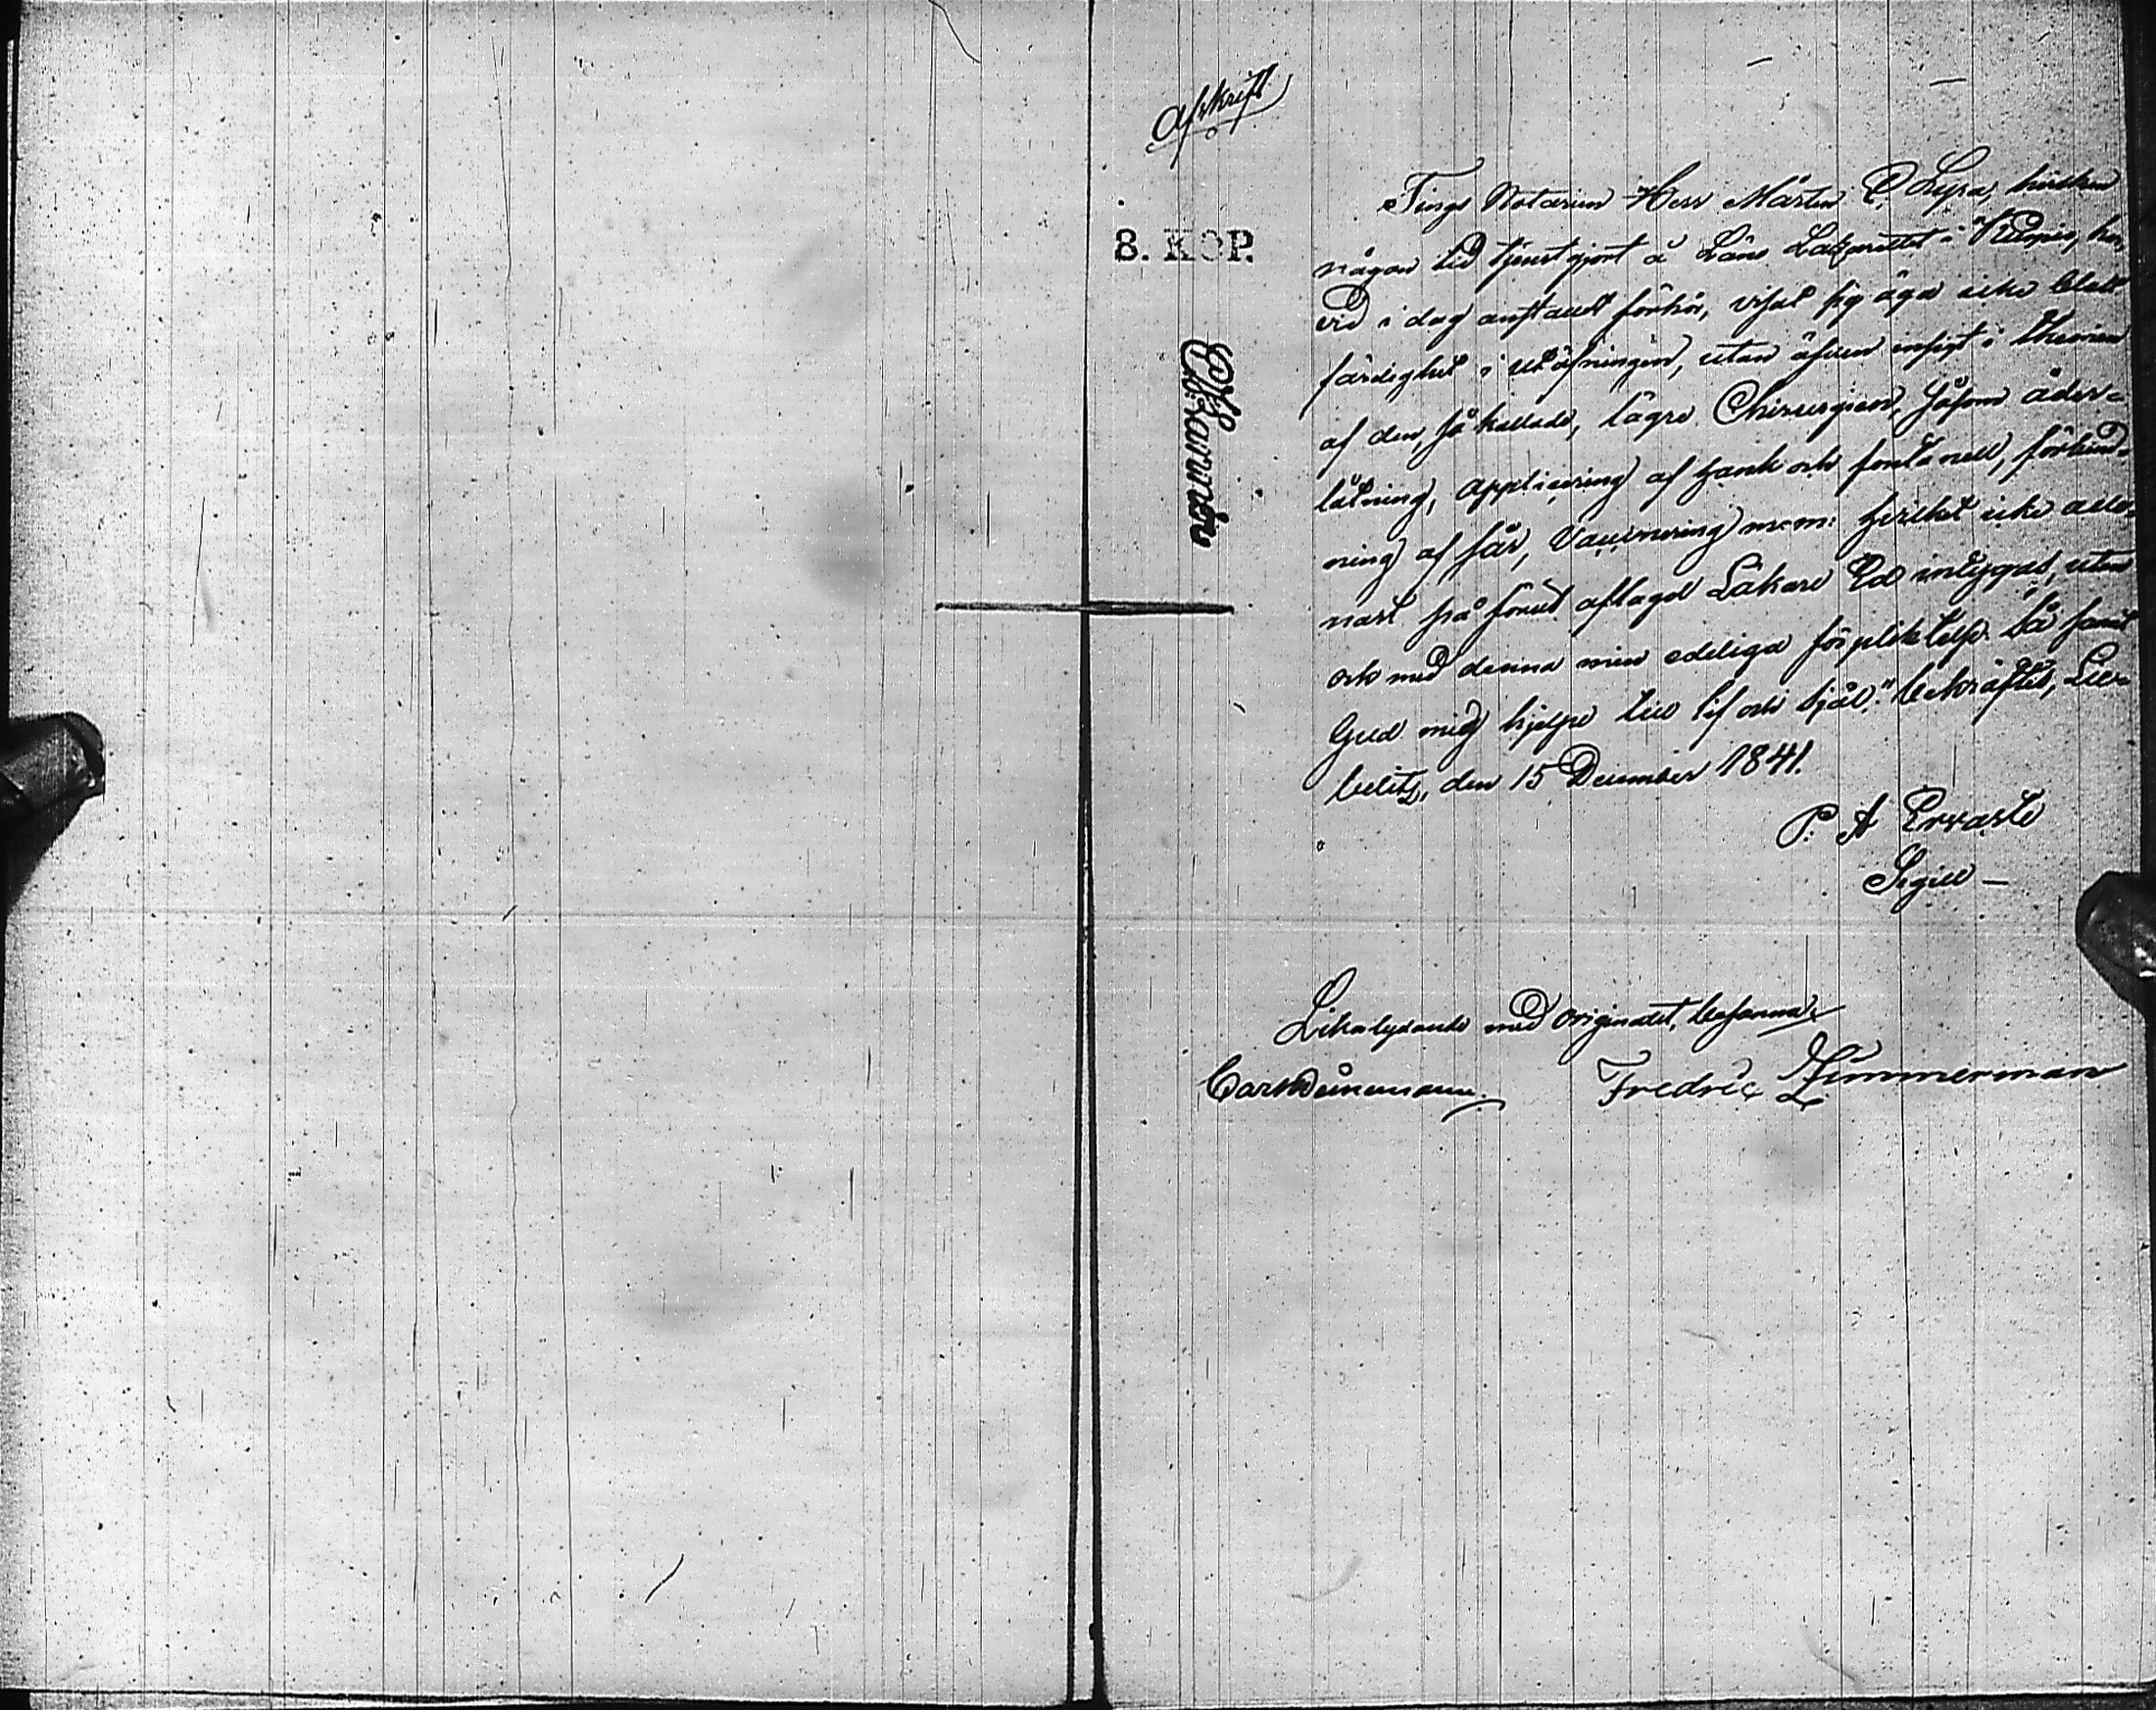 Afskrift
8. KOP.
Tings Notarien Herr Mårten C. Lyra, hvilken
någon tid tjenstgjort å Läns Lazarettet i Kuopio, har,
vid i dag anstaldt förhör, visat sig äga icke blott
färdighet i utöfningen, utan äfven insigt i theorien
af den, så kallade, lägre Chirurgien, såsom åder-
låtning, applicering af hank och fontanell, förbind-
ning af sår, Vaccinering m.m: hvilket icke alle-
nast på förut aflagd Läkare Ed intygas, utan
och med denna min edeliga förpliktelse. Så sant
Gud mig hjelpe till lif och själ." bekräftas, Lill
belitz, den 15 December 1841.
P. A Ervasti
Sigill —
Lika lydande med originalet, befanns,
Carl Dünemann. Fredric Zimmerman